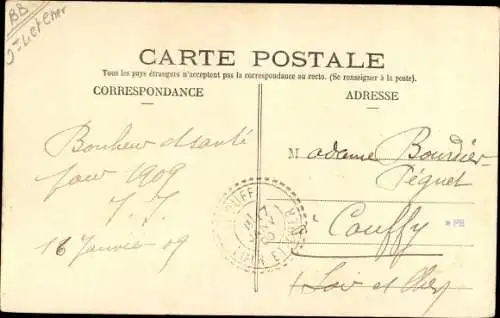 BB
CARTE POSTALE
Tous les pays étrangers n'acceptent pas la correspondance au recto. (Se renseigner à la poste).
CORRESPONDANCE
ADRESSE
Bonheur et santé
pour 1909
16 Janvier 09
Madame Bourdier
Péguet
à Couffy
Loir et Cher
*PH